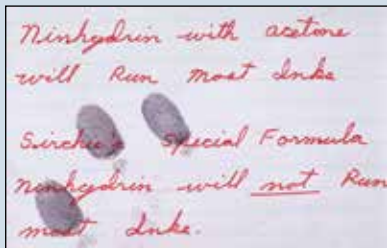 Ninhydrin with acetone
will Run most Inks
Sirchie's Special Formula
ninhydrin will not Run
most Inks.